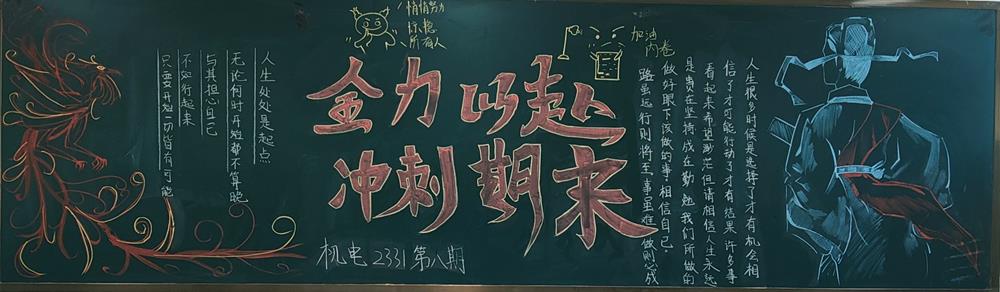 人生处处是起点
无论何时开始都不算晚
与其担心自己
不如行起来
只要开始一切皆有可能
悄悄努力
惊艳
所有人
加油
内卷
全力以赴
冲刺期末
机电2331第八期
人生很多时候是选择了才有机会相
信了才可能行动了才有结果许多事
看起来希望渺茫但请相信人生永远
是贵在坚持成在勤勉我们所做的
做好眼下该做的事相信自己.
路虽远行则将至事虽难做则必成